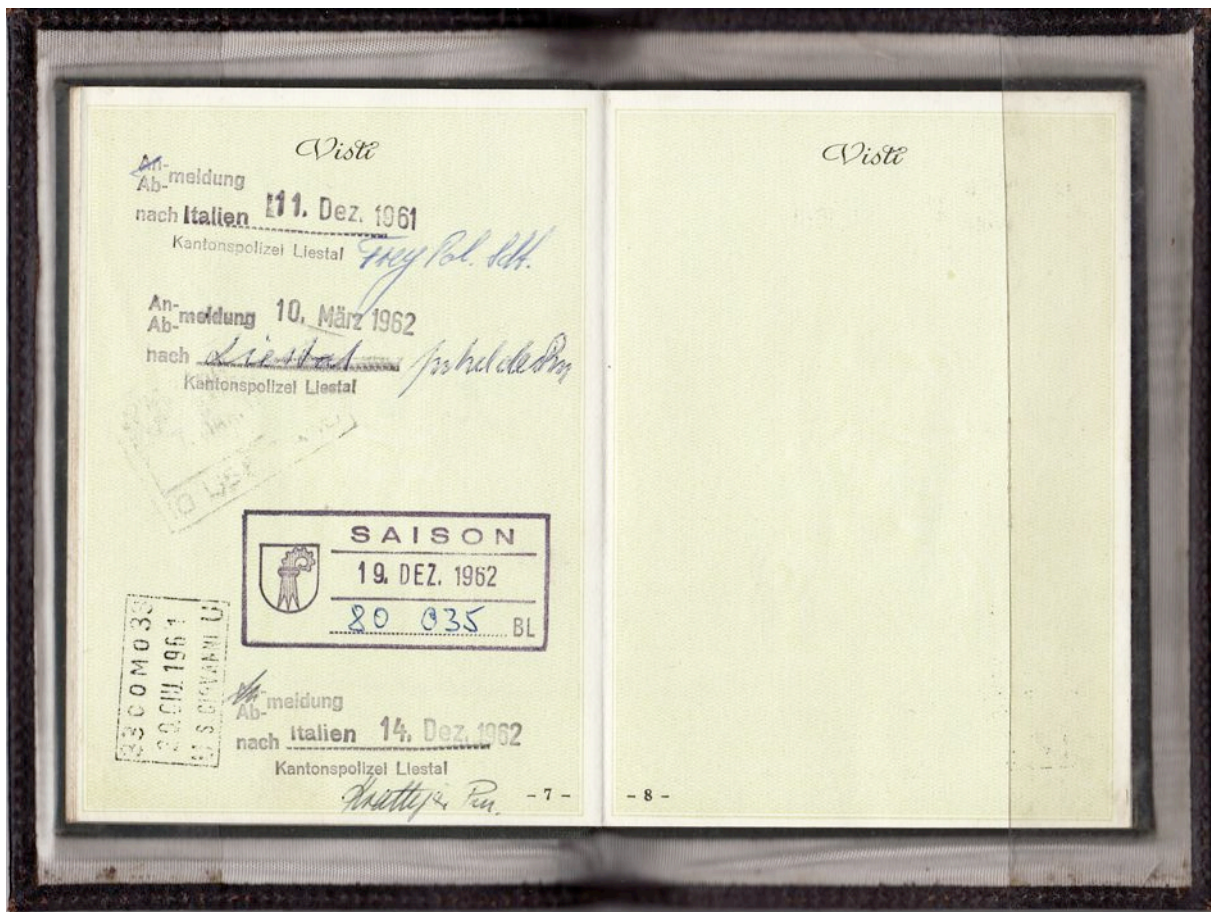 Visti
An-
Ab- meldung
nach Italien 11. Dez. 1961
Kantonspolizei Liestal Frey Pol. Sdt.
An-
Ab- meldung 10. März 1962
nach Liestal
Kantonspolizei Liestal
SAISON
19. DEZ. 1962
80 035 BL
33COMO33
20.GIU.1961
U S.GIOVANNI U
An-
Ab- meldung
nach Italien 14. Dez. 1962
Kantonspolizei Liestal
- 7 -
Visti
- 8 -